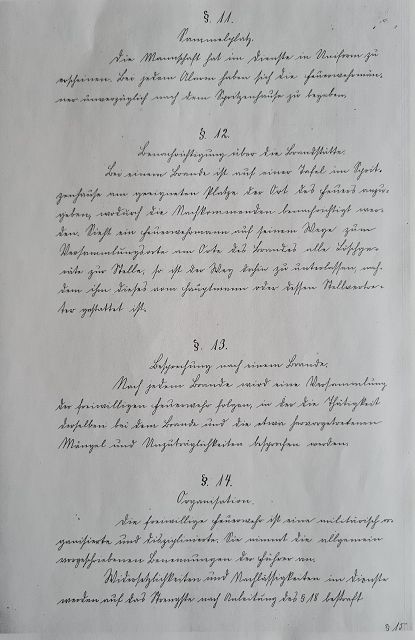 §. 11.
Sammelplatz.
Die Mannschaft hat im Dienste in Uniform zu
erscheinen. Bei jedem Alarm haben sich die Feuerwehrmän-
ner unverzüglich nach dem Spritzenhause zu begeben.
§. 12.
Benachrichtigung über die Brandstätte.
Bei einem Brande ist auf einer Tafel im Sprit-
zenhause am geeigneten Platze der Ort des Feuers anzu-
geben, wodurch die Nachkommenden benachrichtigt wer-
den. Sieht ein Feuerwehrmann auf seinem Wege zum
Versammlungsorte am Orte des Brandes alle Löschge-
räte zur Stelle, so ist der Weg dahin zu unterlassen, nach-
dem ihm dieses vom Hauptmann oder dessen Stellvertre-
ter gestattet ist.
§. 13.
Besprechung nach einem Brande.
Nach jedem Brande wird eine Versammlung
der freiwilligen Feuerwehr folgen, in der die Thätigkeit
derselben bei dem Brande und die etwa hervorgetretenen
Mängel und Unzuträglichkeiten besprochen werden.
§. 14
Organisation.
Die freiwillige Feuerwehr ist eine militärisch or-
ganisierte und disziplinierte. Sie nimmt die allgemein
vorgeschriebenen Benennungen der Führer an.
Widersetzlichkeiten und Nachlässigkeiten im Dienste
werden auf das Strengste nach Anleitung des § 18 bestraft
§ 15